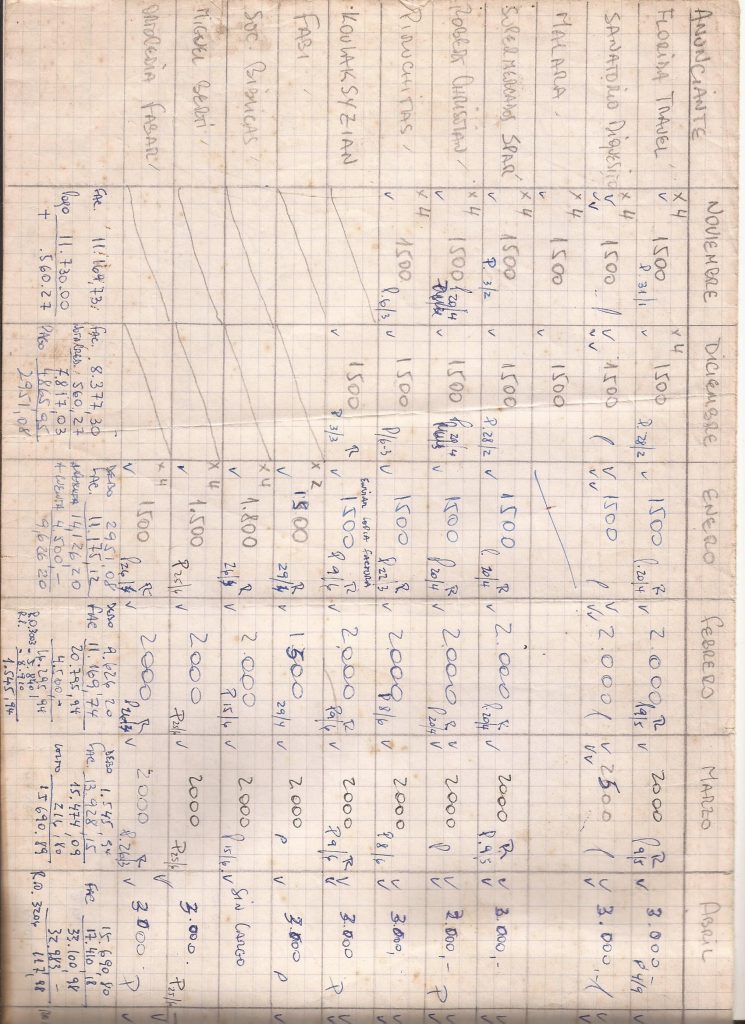 ANUNCIANTE NOVIEMBRE DICIEMBRE ENERO FEBRERO MARZO ABRIL
FLORIDA TRAVEL x4 v 1500 P.31/1 x4 v 1500 P.28/2 v 1500 P.20/4 R v 2.000 P 9/5 R v 2000 P 9/5 R v 3.000 P 4/9
SANATORIO x4 vv 1500 P vv 1500 P vv 1500 P vv 2.000 P vv 2500 P vv 3.000,- P
MALARA x4 v 1500 v 1500
SUPERMERCADOS SPAR x4 v 1500 P. 3/2 v 1500 P.28/2 v 1500 P 20/4 R v 2.000 P.20/4 R v 2000 P. 9/5 R v 3.000,-
ROBERT CHRISTIAN x4 v 1500 P 29/4 v 1500 P 29/4 v 1500 P 20/4 R v 2000 P 20/4 R v 2000 P v 3.000,- P
PIRUCHITAS x4 v 1500 P.6/3 v 1500 P/6-3 v 1500 P 22/3 v 2000 P 8/6 v 2000 P 8/6 v 3.000,
KOULAKSYZIAN v 1500 P 3/3 R ENVIAR COPIA FACTURA v 1500 P 9/6 R v 2.000 P 9/6 R v 2000 P 9/6 R v 3.000 P
FABI x2 v 1.800 29/4 R v 1500 29/4 v 2000 P v 3.000 P
SOC x4 v 1.800 R v 2.000 P 15/6 v 2000 P 15/6 v SIN CARGO
MIGUEL BERTI x4 v 1.500 P 25/4 v 2000 P 25/4 v 2000 P 25/4 v 3.000. P 25/4
FABAR x4 v 1500 R v 2000 R v 2000 R v 3.000. P
FAC. 11.169,73 FAC. 8.377,30 2951,08 9.626,20 1.545,94 15.690,80
PAGO 11.730.00 560,27 FAC. 11.175,12 FAC 11.169,74 FAC. 13.928,15 FAC 17.410,18
+ 560.27 7.817,03 14.126,20 20.795,94 15.474,09 33.100,98
PAGO 4865,95 4.500,- 4.500,- 216,80 32.983 -
2951,08 9.626.20 16.295,94 15.690,89 117,98
1.545,94